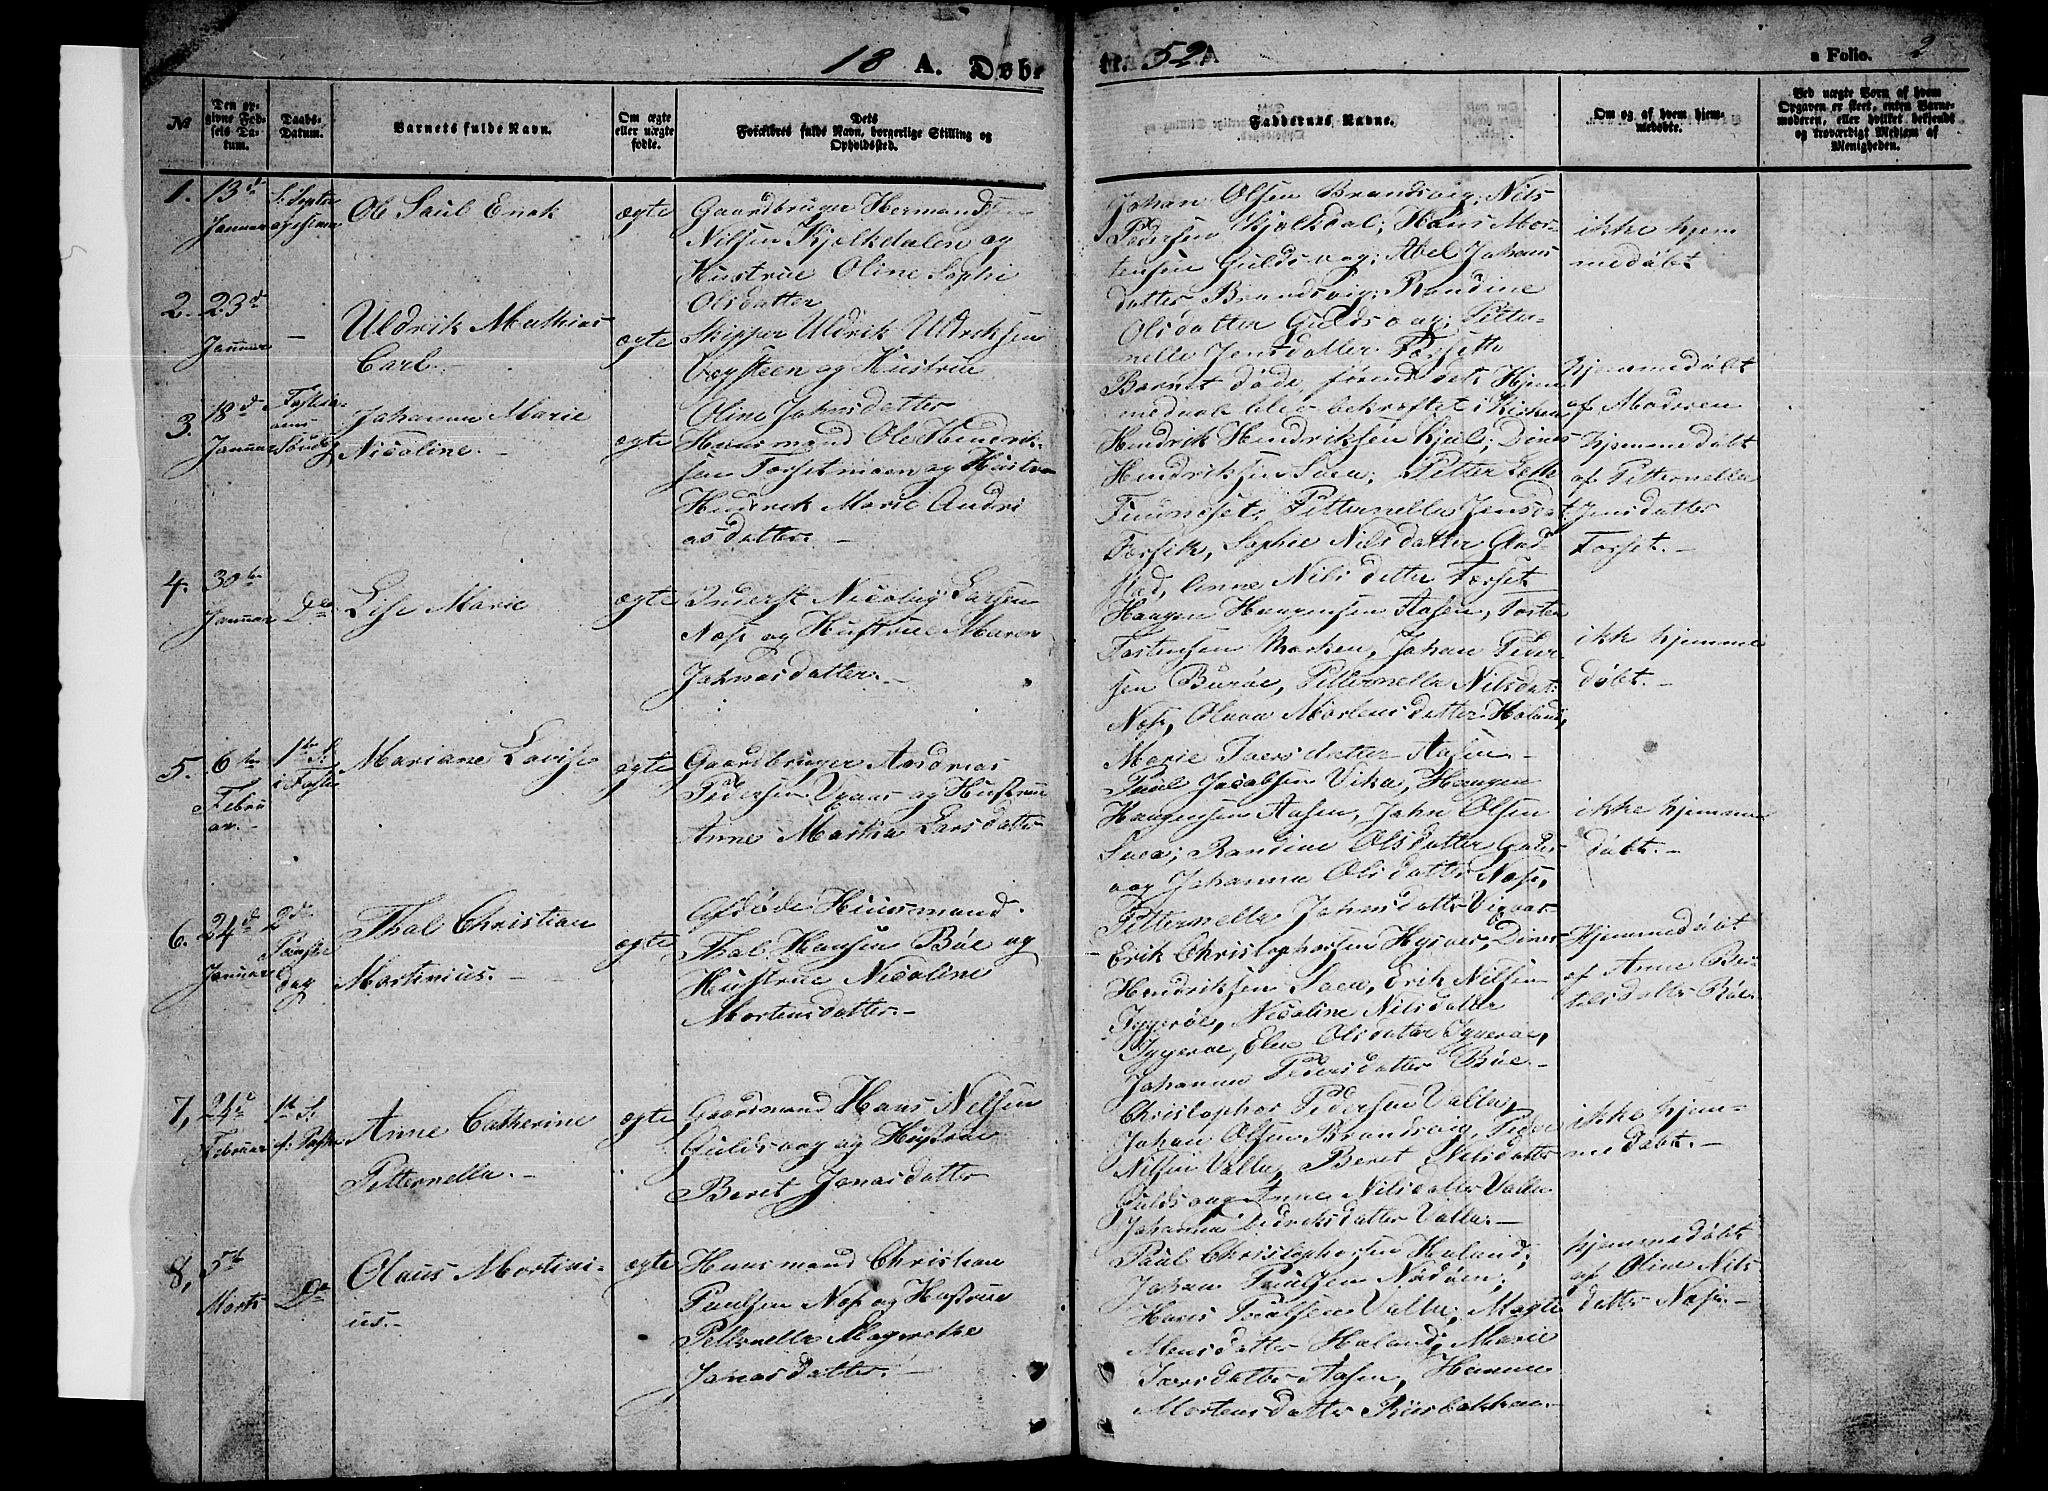 18 A. Døb- te 52 A
a Folio. 2
No
Den op-
givne Fød-
sels Da-
tum.
Daabs-
Datum.
Barnets fulde Navn.
Om ægte
eller uægte
fødte.
Dets
Forældres fulde Navn, borgerlige Stilling og
Opholdssted.
Faddernes Navne.
Om og af hvem hjem-
medøbte.
Ved uægte Børn af hvem
Opgaven er skeet, enten Barne-
moderen, eller hvilket bekjendt
og troværdigt Medlem af
Menigheden.
1.
13d
Januar
S. Septua
gesima
Ole Saul Enok
ægte
Gaardbruger Hermand
Nilsen Kjelkdalen og
Hustrue Oline Sophi
Olsdatter
Johan Olsen Brandsvig; Nils
Pedersen Kjelkdal; Hans Mor-
tensen Guldsvag; Abel Johans
datter Brandsvig; Randine
Olsdatter Guldsvag; Petter-
nella Jensdatter Forsette
ikke hjem
medøbt
2.
23d
Januar
—
Uldrik Mathias
Carl.
ægte
Skipper Uldrik Uldriksen
og Hustrue
Oline Johnsdatter
Barnet døde, førend dets Hjem
medaab blev bekræftet i Kirken
hjemmedøbt
af Moderen
3.
18d
Januar
Fastela-
vns-
Søndag
Johanna Marie
Nicoline.
ægte
Huusmand Ole Hendrik-
sen Forsetmoen og Hustru
Hendrik Marie Andri
asdatter. —
Hendrik Hendriksen Kjul; Dines
Hendriksen Soen; Petter
Pitternella Jensdat
Forsik, Sophie Nilsdatter
Anne Nilsdatter Forset
hjemmedøbt
af Petternella
Jensdatter
Forset. —
4.
30te
Januar
Do
Lise Marie
ægte
Inderst Nicolay Larsen
Næss og Hustrue Maren
Johnasdatter. —
Haagen Haagensen Aasen, Torsten
Torstensen Marken, Johan Peder-
sen Burøe, Petternella Nilsdat:
Næss, Oluva Mortensdatter Haland,
Marie Toersdatter Aasen —
ikke hjemme
døbt. —
5.
6te
Febru
ar. —
1te S.
i Faste
Mariane Lovise
ægte
Gaardbruger Andreas
Pedersen og Hustrue
Anne Martha Larsdatter
Paul Jacobsen Vika, Haagen
Haagensen Aasen, John Olsen
Soen; Randine Olsdatter Guds-
vag Johanna Olsdatter Næss,
Petternella Johnsdatter
ikke hjemme
døbt. —
6.
24d
Januar
2d
Paaske
dag
Thal Christian
Martinius. —
ægte
Afdøde Huusmand
Thal Hansen Bøe og
Hustrue Nicoline
Mortensdatter. —
Erik Christophersen Dines
Hendriksen Soen, Erik Nilsen
Iggerøe, Nicoline Nilsdatter
Iggerøe, Elen Olsdatter Iggerøe,
Johanna Pedersdatter Bøe —
Hjemmedøbt
af Anne Ber-
telsdatter Bøe.
7,
24d
Februar
1te S.
f. Paaske
Anne Catherine
Petternella. —
ægte
Gaardmand Hans Nelsen
Guldsvag og Hustrue
Beret Jonasdatter
Christopher Pedersen Valla,
Johan Olsen Brandsvig, Peder
Nilsen Valla, Beret Nilsdatter
Guldsvag Anne Nilsdatter Valla
Johanna Didriksdatter Valla. —
ikke hjem-
medøbt. —
8,
5te
Marts
Do
Olaus Martini-
us. —
ægte
Huusmand Christian
Paulsen Næss og Hustrue
Petternella Magrethe
Jonasdatter. —
Paul Christophersen Haland;
Johan Paulsen
Hans Valla; Magte
Monsdatter Haland; Marie
Toersdatter Aasen, Hanna
Mortensdatter Riisbakken —
hjemmedøbt
af Oline Nils
datter Næss —